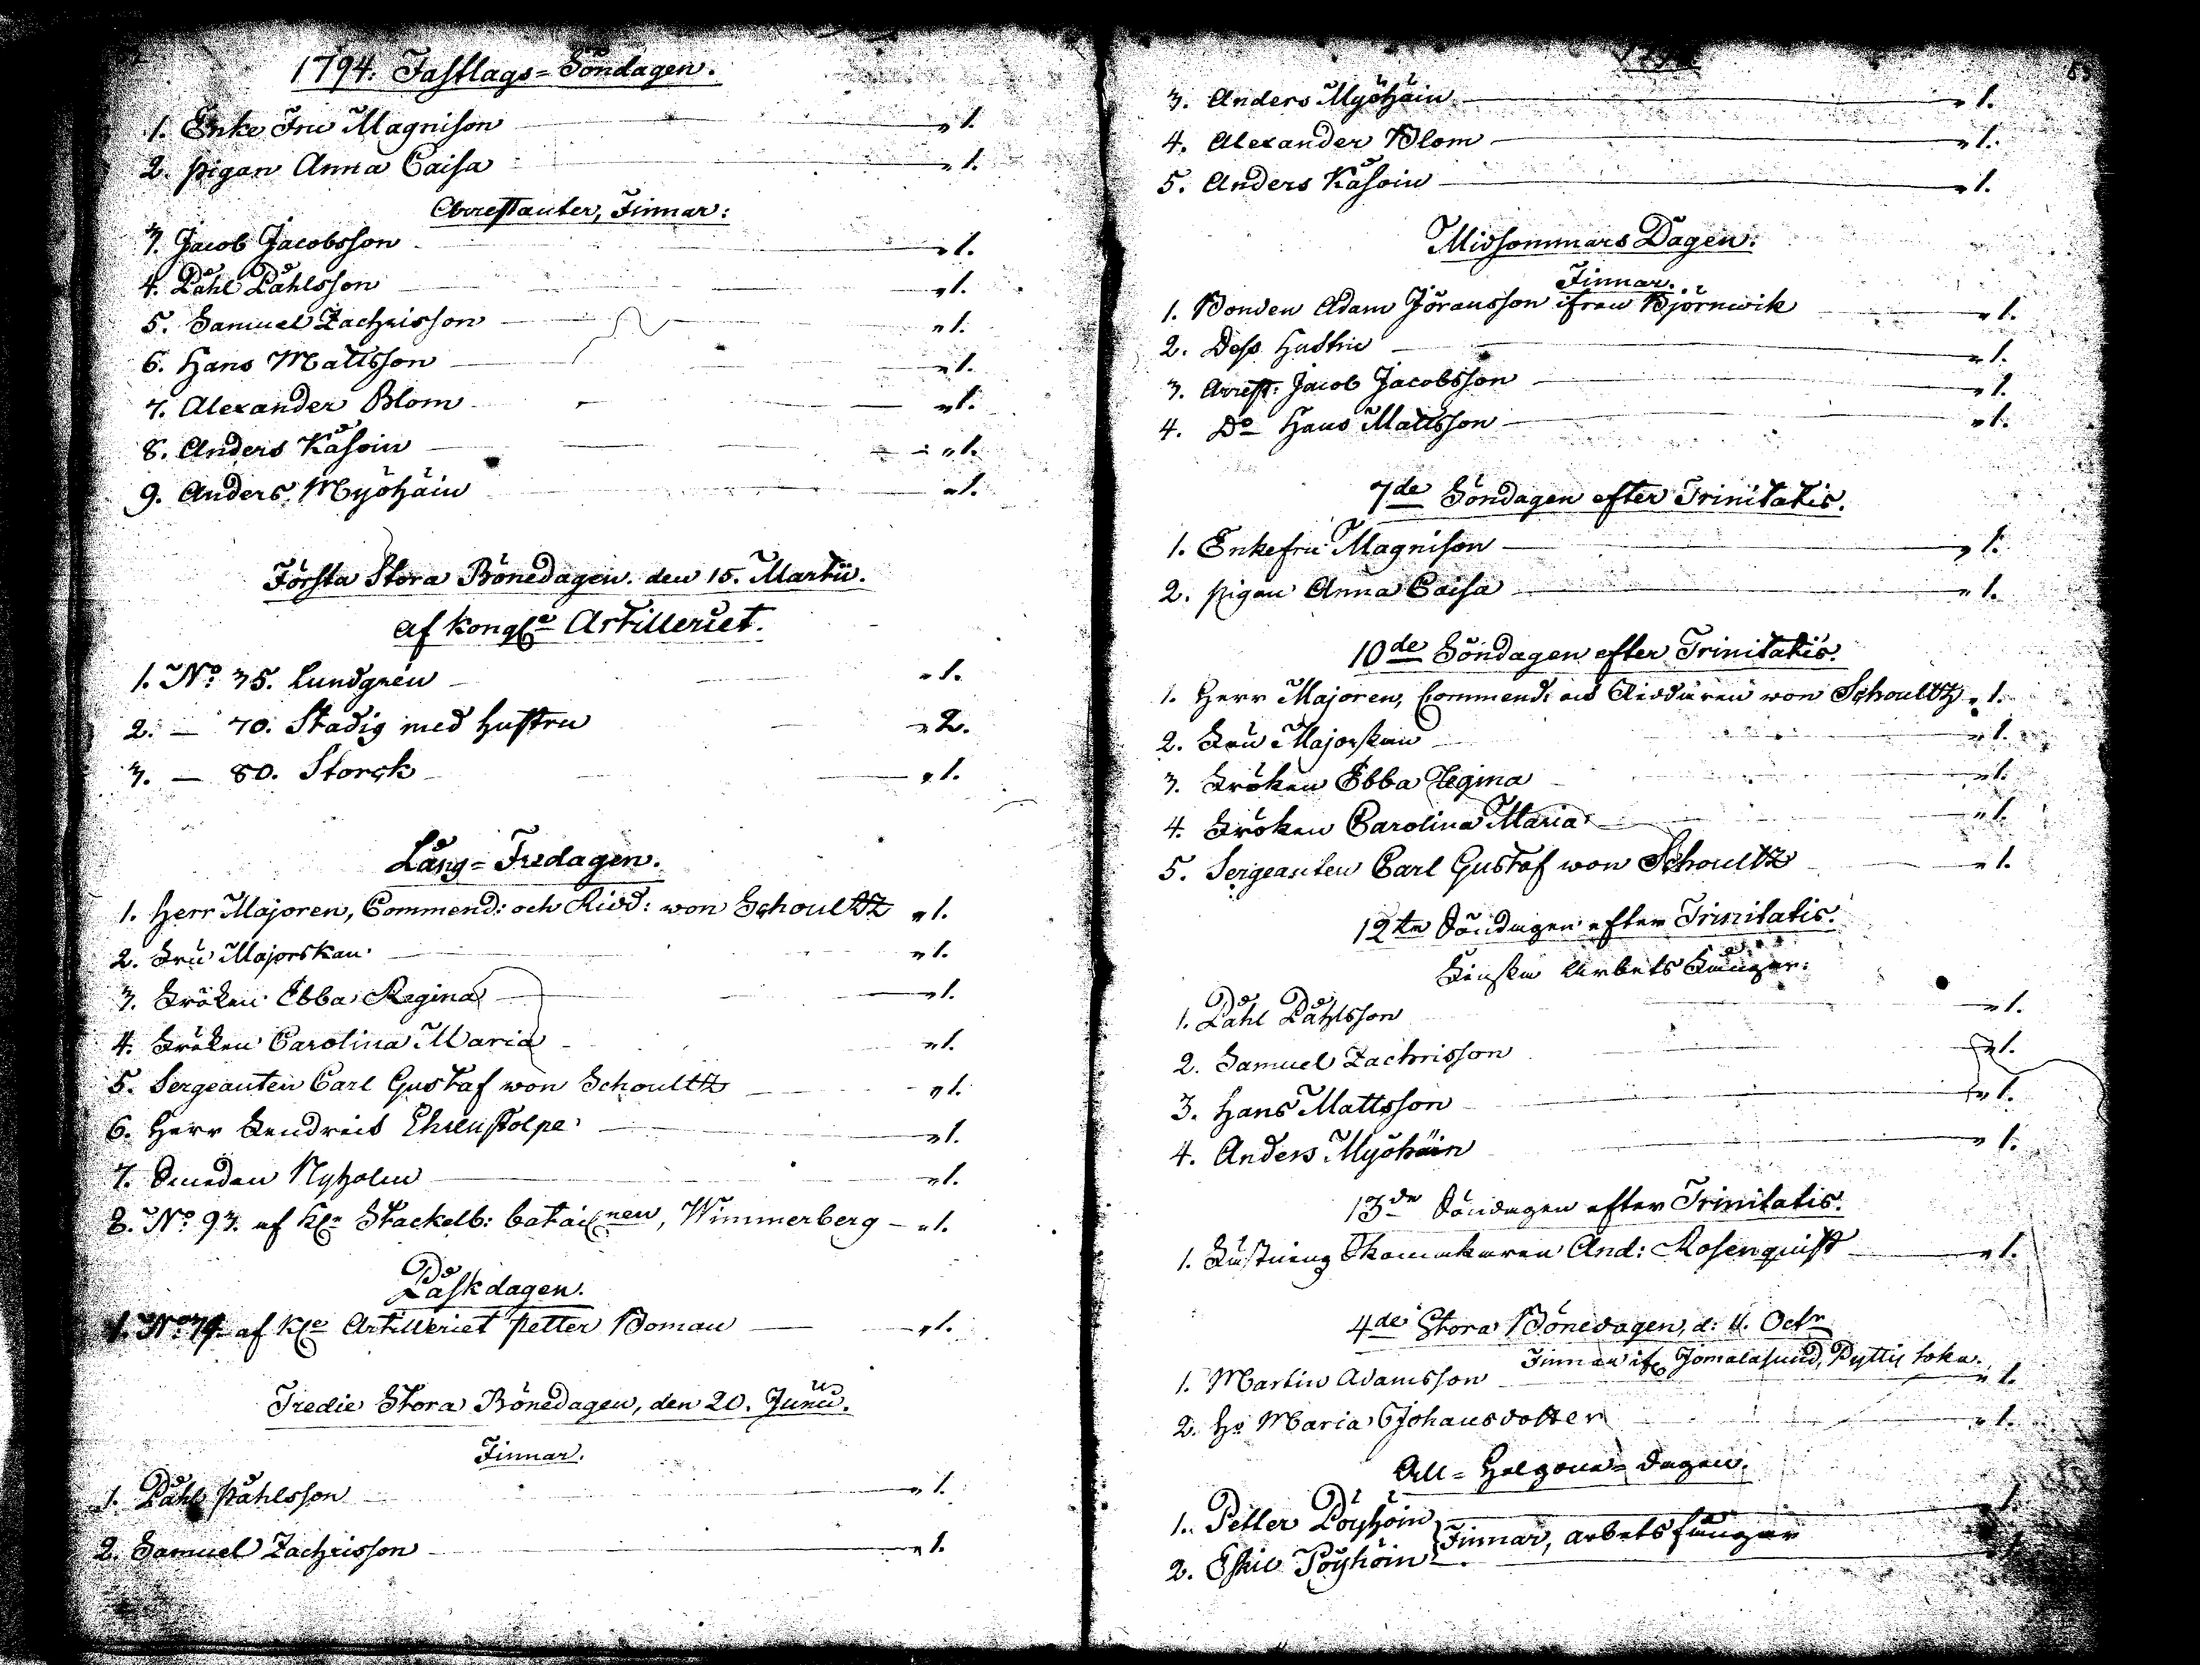 1794. Fastlags=Söndagen.
1. Enke Fru Magnison „1.
2. pigan Anna Caisa „1.
Arrestanter, Finnar:
3. Jacob Jacobsson „1.
4. Påhl Påhlsson „1.
5. Samuel Zachrisson „1.
6. Hans Mattsson „1.
7. Alexander Blom „1.
8. Anders Kåsoin „1.
9. Anders Myöhäin „1.
Första Stora Bönedagen den 15. Martii.
af Kongl. Artilleriet.
1. No 35. Lundgren „1.
2. — 70. Stadig med hustru „2.
3. — 80. Storck „1.
Lång=Fredagen.
1. Herr Majoren, Commend: och Ridd: von Schoultz „1.
2. Fru Majorskan „1.
3. Fröken Ebba Regina „1.
4. Fröken Carolina Maria „1.
5. Sergeanten Carl Gustaf von Schoultz „1.
6. Herr Fendrick Ehrenstolpe „1.
7. Smeden Nyholm „1.
8. No 93. af Kl. Stackelb: bataillnen, Wimmerberg „1.
Påskdagen.
1. No 74 af Kl. Artilleriet petter Boman „1.
Tredie Stora Bönedagen, den 20. Junii.
Finnar.
1. Påhl påhlsson „1.
2. Samuel Zachrisson „1.
3. Anders Myöhäin „1.
4. Alexander Blom „1.
5. Anders Kåsoin „1.
Midsommars Dagen:
Finnar.
1. Bonden Adam Jöransson ifrån Björnwik „1.
2. Dess Hustru „1.
3. Arrest: Jacob Jacobsson „1.
4. Do Hans Mattsson „1.
7de Söndagen efter Trinitatis.
1. Enkefru Magnison „1.
2. pigan Anna Caisa „1.
10de Söndagen efter Trinitatis.
1. Herr Majoren, Commend: och Riddaren von Schoultz „1.
2. Fru Majorskan „1.
3. Fröken Ebba Regina „1.
4. Fröken Carolina Maria „1.
5. Sergeanten Carl Gustaf von Schoultz „1.
12te Söndagen efter Trinitatis.
Finska Arbets Fångar:
1. Påhl Påhlsson „1.
2. Samuel Zachrisson „1.
3. Hans Mattsson „1.
4. Anders Myöhäin „1.
13de Söndagen efter Trinitatis.
1. Fästnings Skomakaren And: Rosenquist „1.
4de Stora Bönedagen, d: 11. Octr
Finnar ifr Jomalasund, Pyttis Sokn.
1. Martin Adamsson „1.
2. Hs Maria Johansdotter „1.
All=Helgona=Dagen.
1. Petter Pöyhöin „1.
Finnar, arbets fångar
2. Eskil Pöyhöin „1.